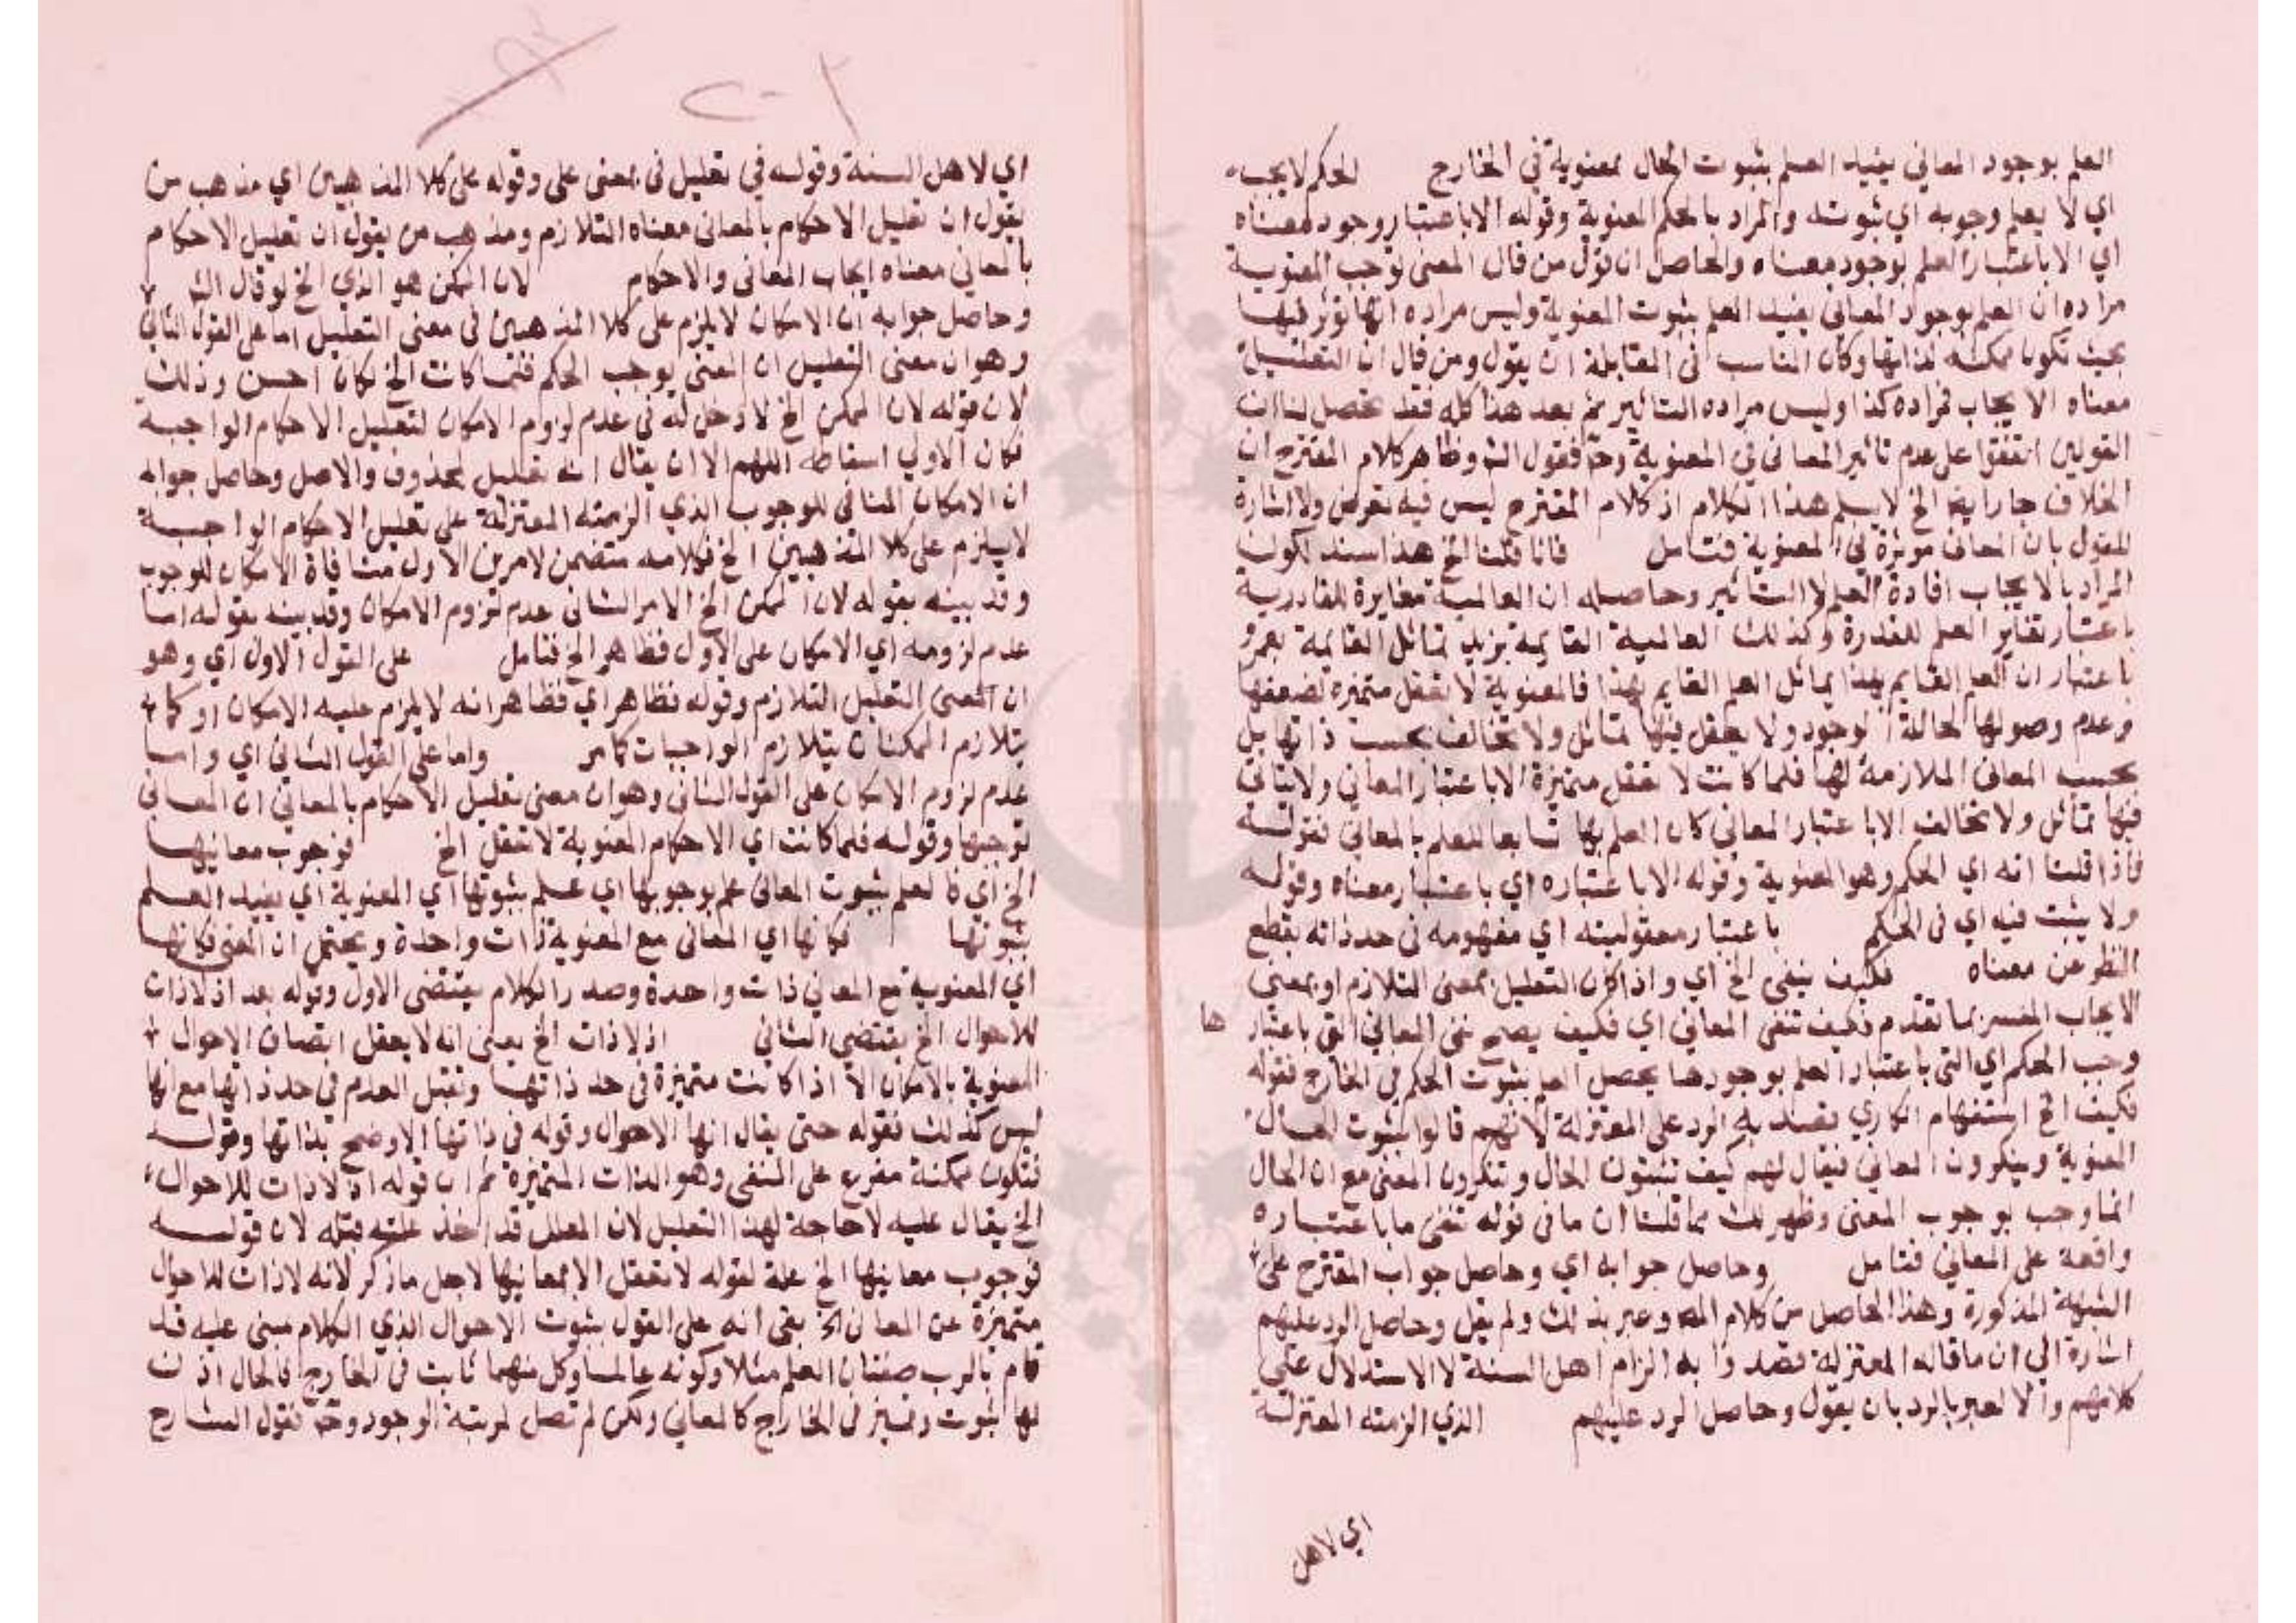 العلم بوجود المعاني يفيد العلم بثبوت الحال بمعنوية في الخارج الحكم لا يجب
اي لا يعلم وجوبه اي ثبوته والمراد بالحكم المعنوية وقوله الا باعتبار وجود معناه
اي الا باعتبار العلم بوجود معناه والحاصل ان قول من قال المعنى توجب المعنوية
مراده ان العلم بوجود المعاني يفيد العلم بثبوت المعنوية وليس مراده انها تؤثر فيها
بحيث تكون ممكنة لذاتها وكان المناسب في المقابلة ان يقول ومن قال ان التعليل
معناه الايجاب فمراده كذا وليس مراده التاثير ثم بعد هذا كله فقد تحصل لنا ان
القولين اتفقوا على عدم تاثير المعاني في المعنوية وح فقول الش وظاهر كلام المقترح ان
الخلاف جار ايضا الخ لا يسلم هذا الكلام اذ كلام المقترح ليس فيه تعرض ولا اشارة
للقول بان المعاني موثرة في المعنوية فتامل فانا قلنا الخ هذا سند لكون
المراد بالايجاب افادة العلم لا التاثير وحاصله ان العالمية مغايرة للقادرية
باعتبار تغاير العلم للقدرة وكذلك العالمية القايمة بزيد تماثل القايمة بعمرو
باعتبار ان العلم القايم بهذا يماثل العلم القايم بهذا فالمعنوية لا تعقل متميزة لضعفها
وعدم وصولها لحالة الوجود ولا يعقل فيها تماثل ولا تخالف بحسب ذاتها بل
بحسب المعاني الملازمة لها فلما كانت لا تعقل متميزة الا باعتبار المعاني ولا يتاتى
فيها تماثل ولا تخالف الا باعتبار المعاني كان العلم بها تابعا للعلم بالمعاني فقوله
فاذا قلنا انه اي الحكم وهو المعنوية وقوله الا باعتباره اي باعتبار معناه وقوله
ولا يثبت فيه اي في الحكم باعتبار معقوليته اي مفهومه في حد ذاته بقطع
النظر عن معناه فكيف ينفى الخ اي واذا كان التعليل بمعنى التلازم او بمعنى
الايجاب المفسر بما تقدم فكيف تنفى المعاني اي فكيف يصح نفي المعاني التي باعتبار ها
وجب الحكم اي التي باعتبار العلم بوجودها يحصل العلم بثبوت الحكم في الخارج فقوله
فكيف الخ استفهام انكاري قصد به الرد على المعتزلة لانهم قالوا بثبوت الحال
المعنوية وينكرون المعاني فيقال لهم كيف تثبتون الحال وتنكرون المعنى مع ان الحال
انما وجب بوجوب المعنى وظهر لك مما قلنا ان ما في قوله تنفى ما باعتباره
واقعة على المعاني فتامل وحاصل جوابه اي وحاصل جواب المقترح على
الشبهة المذكورة وهذا الحاصل من كلام المص وعبر بذلك ولم يقل وحاصل الرد عليهم
اشارة الى ان ما قاله المعتزلة قصدوا به الزام اهل السنة لا الاستدلال على
كلامهم والا لعبر بالرد بان يقول وحاصل الرد عليهم الذي الزمته المعتزلة
اي لاهل
اي لاهل السنة وقوله في تعليل في بمعنى على وقوله على كلا المذهبين اي مذهب من
يقول ان تعليل الاحكام بالمعاني معناه التلازم ومذهب من يقول ان تعليل الاحكام
بالمعاني معناه ايجاب المعاني والاحكام لان الممكن هو الذي الخ لو قال الش
وحاصل جوابه ان الامكان لا يلزم على كلا المذهبين في معنى التعليل اما على القول الثاني
وهو ان معنى التعليل ان المعنى يوجب الحكم فلما كانت الخ لكان احسن وذلك
لان قوله لان الممكن الخ لا دخل له في عدم لزوم الامكان لتعليل الاحكام الواجبة
فكان الاولى اسقاطه اللهم الا ان يقال انه تعليل لمحذوف والاصل وحاصل جوابه
ان الامكان المنافي للوجوب الذي الزمته المعتزلة على تعليل الاحكام الواجبة
لا يلزم على كلا المذهبين الخ فكلامه متضمن لامرين الاول منافاة الامكان للوجوب
وقد بينه بقوله لان الممكن الخ الامر الثاني عدم لزوم الامكان وقد بينه بقوله اما
عدم لزومه اي الامكان على الاول فظاهر الخ فتامل على القول الاول اي وهو
ان المعنى التعليل التلازم وقوله فظاهر اي فظاهر انه لا يلزم عليه الامكان اذ كما
يتلازم الممكنان يتلازم الواجبات كما مر واما على القول الثاني اي واما
عدم لزوم الامكان على القول الثاني وهو ان معنى تعليل الاحكام بالمعاني ان المعاني
توجبها وقوله فلما كانت اي الاحكام المعنوية لا تعقل الخ فوجوب معانيها
الخ اي فالعلم بثبوت المعاني علم بوجوبها اي علم بثبوتها اي المعنوية اي يفيد العلم
بثبوتها فكانها اي المعاني مع المعنوية ذات واحدة ويحتمل ان المعنى فكانها
اي المعنوية مع المعاني ذات واحدة وصدر الكلام يقتضي الاول وقوله بعد اذ لا ذات
للاحوال الخ يقتضي الثاني اذ لا ذات الخ يعني انه لا يعقل اتصاف الاحوال
المعنوية بالامكان الا اذا كانت متميزة في حد ذاتها وتقبل العدم في حد ذاتها مع انها
ليس كذلك فقوله حتى يقال انها الاحوال وقوله في ذاتها الاوضح بذاتها وقوله
فتكون ممكنة مفرع على المنفي وهو الذات المتميزة ثم ان قوله اذ لا ذات للاحوال
الخ يقال عليه لا حاجة لهذا التعليل لان المعلل قد اخذ علته قبله لان قوله
فوجوب معانيها الخ علة لقوله لا تعقل الا بمعانيها لاجل ما ذكر لانه لا ذات للاحوال
متميزة عن المعاني الخ بقى انه على القول بثبوت الاحوال الذي الكلام مبني عليه قد
قام بالرب صفتان العلم مثلا وكونه عالما وكل منهما ثابت في الخارج فالحال اذن
لها ثبوت وتميز في الخارج كالمعاني ولكن لم تصل لمرتبة الوجود وح فقول الشارح